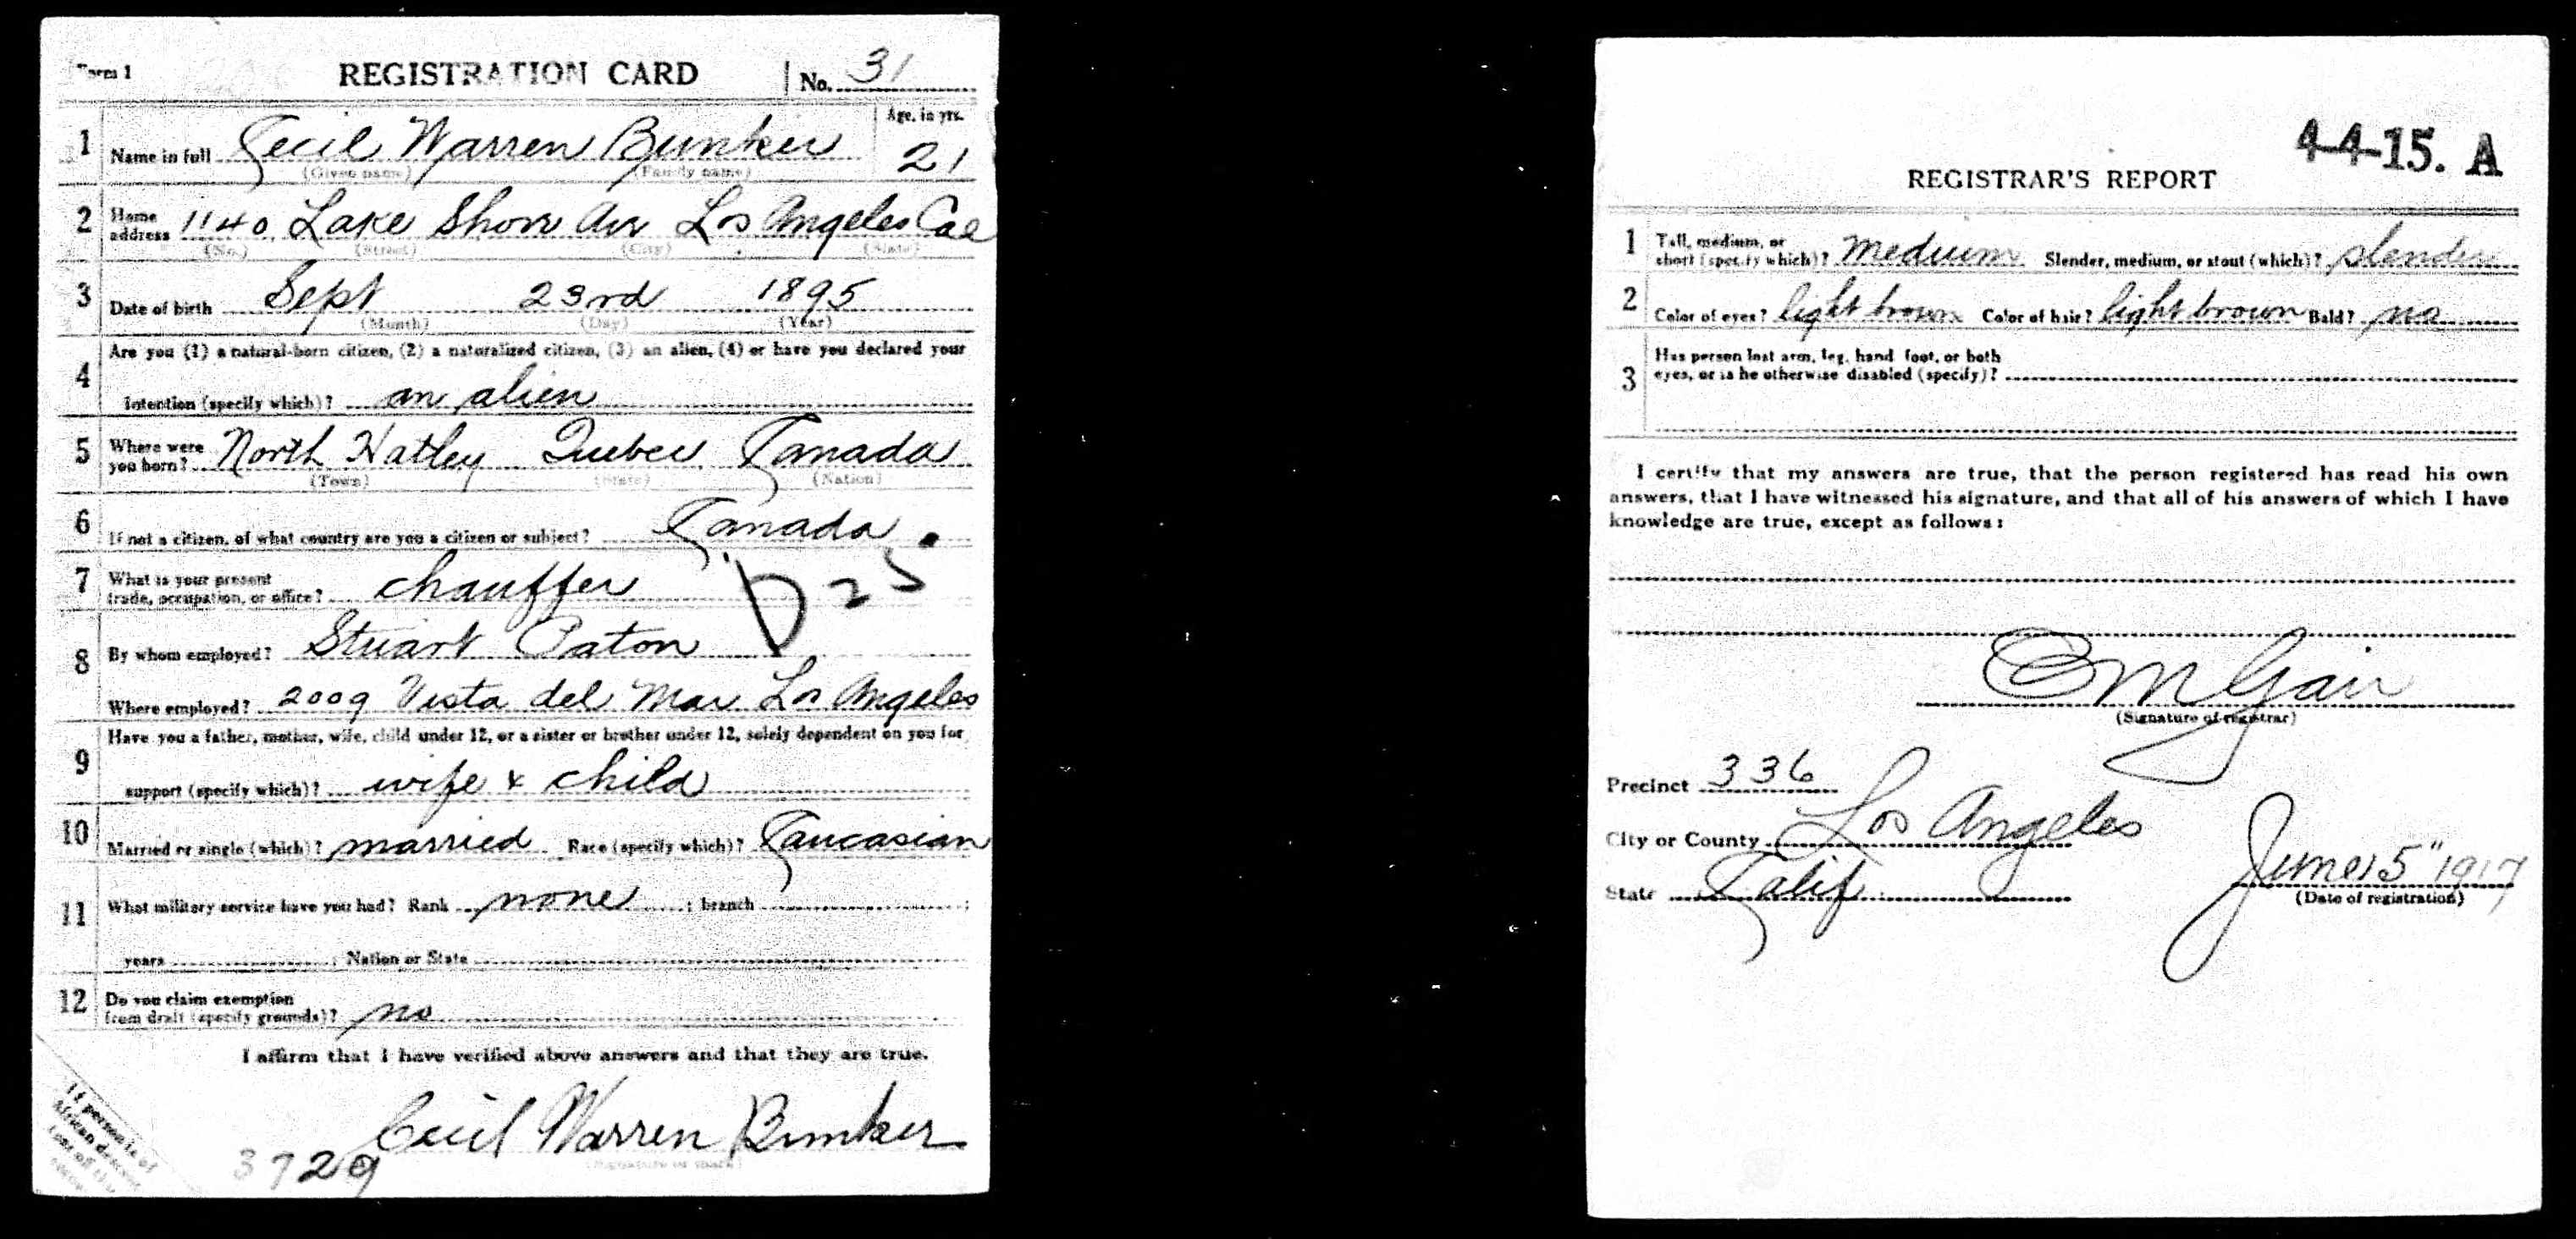 Form 1 REGISTRATION CARD No. 31
1 Name in full Cecil Warren Bunker Age, in yrs. 21
(Given name) (Family name)
2 Home address 1140 Lake Shore Av Los Angeles Cal
(No.) (Street) (City) (State)
3 Date of birth Sept 23rd 1895
(Month) (Day) (Year)
4 Are you (1) a natural-born citizen, (2) a naturalized citizen, (3) an alien, (4) or have you declared your
intention (specify which)? an alien
5 Where were you born? North Hatley Quebec Canada
(Town) (State) (Nation)
6 If not a citizen, of what country are you a citizen or subject? Canada
7 What is your present trade, occupation, or office? chauffer
D 25
8 By whom employed? Stuart Paton
Where employed? 2009 Vista del Mar Los Angeles
9 Have you a father, mother, wife, child under 12, or a sister or brother under 12, solely dependent on you for
support (specify which)? wife & child
10 Married or single (which)? married Race (specify which)? Caucasian
11 What military service have you had? Rank none ; branch ;
years ; Nation or State
12 Do you claim exemption from draft (specify grounds)? no
I affirm that I have verified above answers and that they are true.
Cecil Warren Bunker
(Signature or mark)
3729
If person is of
African descent,
4-4-15. A
REGISTRAR'S REPORT
1 Tall, medium, or short (specify which)? medium Slender, medium, or stout (which)? slender
2 Color of eyes? light brown Color of hair? light brown Bald? no
3 Has person lost arm, leg, hand, foot, or both
eyes, or is he otherwise disabled (specify)?
I certify that my answers are true, that the person registered has read his own
answers, that I have witnessed his signature, and that all of his answers of which I have
knowledge are true, except as follows:
E M Gair
(Signature of registrar)
Precinct 336
City or County Los Angeles
State Calif.
June 5" 1917
(Date of registration)